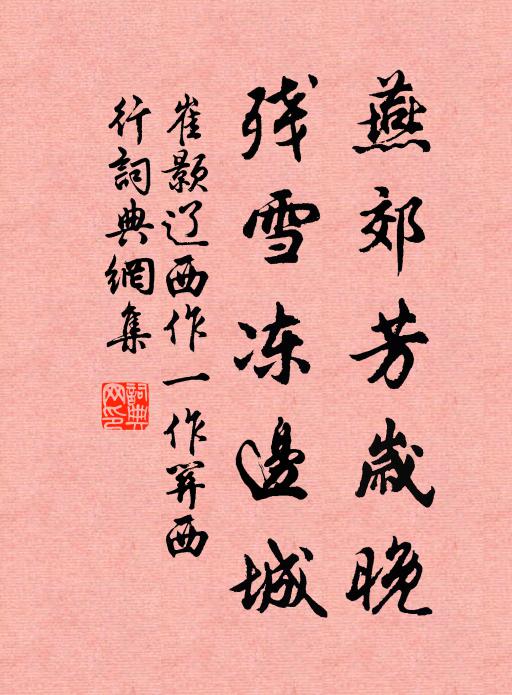 燕郊芳岁晚
残雪冻邊城
崔颢辽西作一作關西
行詞典網集
詞典
网印